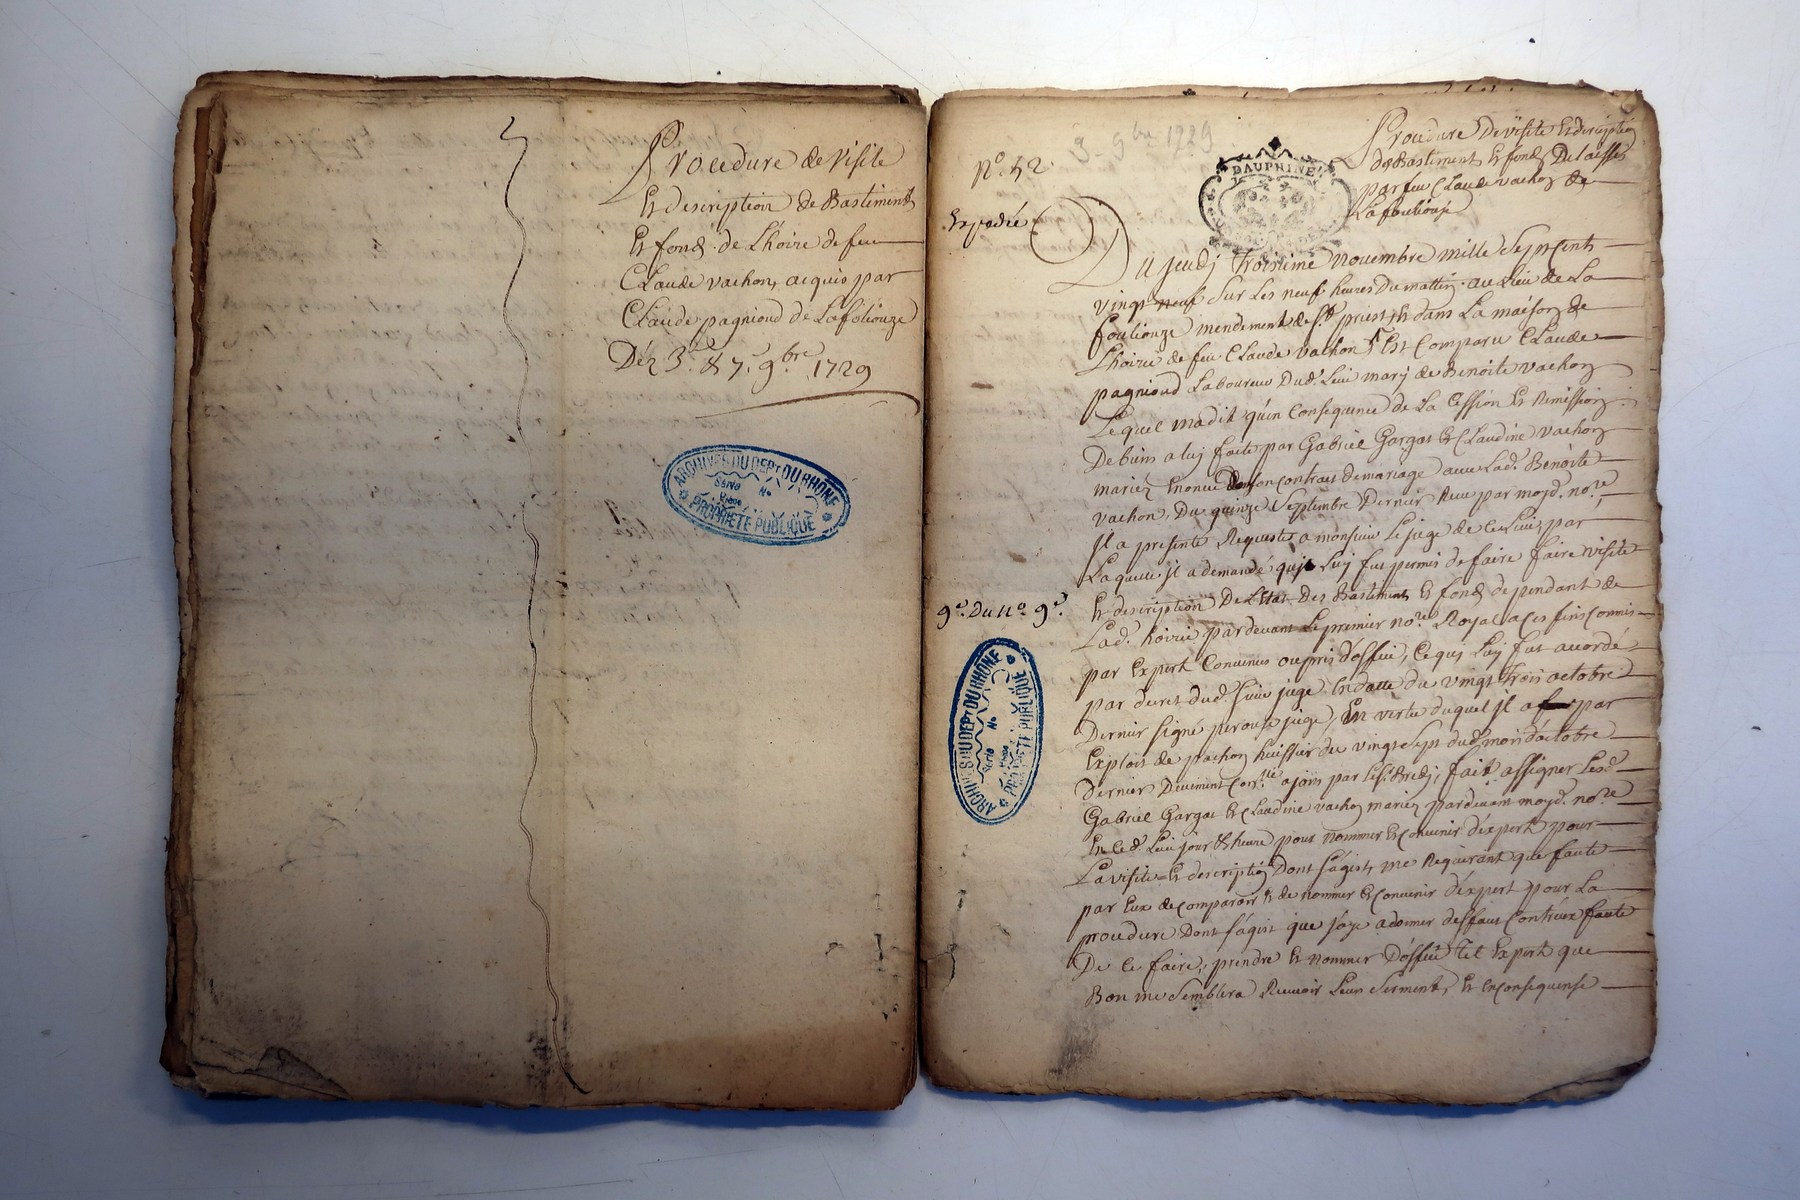 Procedure de visite
Et description de Bastiments
Et fonds de l'hoirie de feu
Claude vachon, acquis par
Claude pagnioud de Lafoliouze
Des 3.e & 7.e 9.bre 1729
ARCHIVES DU DEPT DU RHÔNE
Série No
Pièce
PROPRIÉTÉ PUBLIQUE
3 9bre 1729
No. 52
DAUPHINÉ
Procedure De visite Et description
de Bastiments Et fonds Delaissés
par feu Claude vachon de
La fouliouse
Expediée
Du jeudy troisieme novembre mille sept cents
vingt neuf sur les neuf heures du mattin au Lieu de La
fouliouze mendement de St. priest, Et dans La maison de
L'hoirie de feu Claude vachon Est Comparu Claude
pagnioud Laboureur Dud. Lieu mary de Benoite vachon
Lequel m'a dit qu'en Consequence de La Cession Et Remission
De biens a luy faite par Gabriel Gargat Et Claudine vachon
mariez Enoncée Dans son contract de mariage avec Lad. Benoite
vachon, Du quinze Septembre Dernier Receu par moyd. no.re,
Il a presenté Requeste a monsieur Le juge de ce Lieu par
Laquelle il a demandé qu'il Luy fut permis de faire faire visite
Et description De L'Etat Des Bastiments Et fonds dependant de
9e. Du no. 9e.
Lad. hoirie pardevant Le premier no.re Royal a ces fins commis
par Expert Convenus ou pris d'office, Ce qui Luy fut accordé
par decret dud. sieur juge En datte du vingt trois octobre
Dernier signé perouse juge, En vertu duquel il a par
Exploit de pachon huissier du vingt sept dud. mois d'octobre
dernier Deuement Con.llé a join par Le Sr. Bredy, fait assigner Lesd.
Gabriel Gargat Et Claudine vachon mariez pardevant moyd. no.re
En Ce d. Lieu jour Et heure pour nommer Et convenir d'expert pour
La visite Et description Dont s'agist, me Requerant que faute
par Eux de comparoir Et de nommer Et convenir d'expert pour La
procedure Dont s'agist que j'aye a donner deffaut Contr'eux faute
De Ce faire, prendre Et nommer D'office Tel Expert que
Bon me semblera Recevoir Leur Serment, Et En consequense
ARCHIVES DU DEPT DU RHÔNE
Série No
Pièce
PROPRIÉTÉ PUBLIQUE